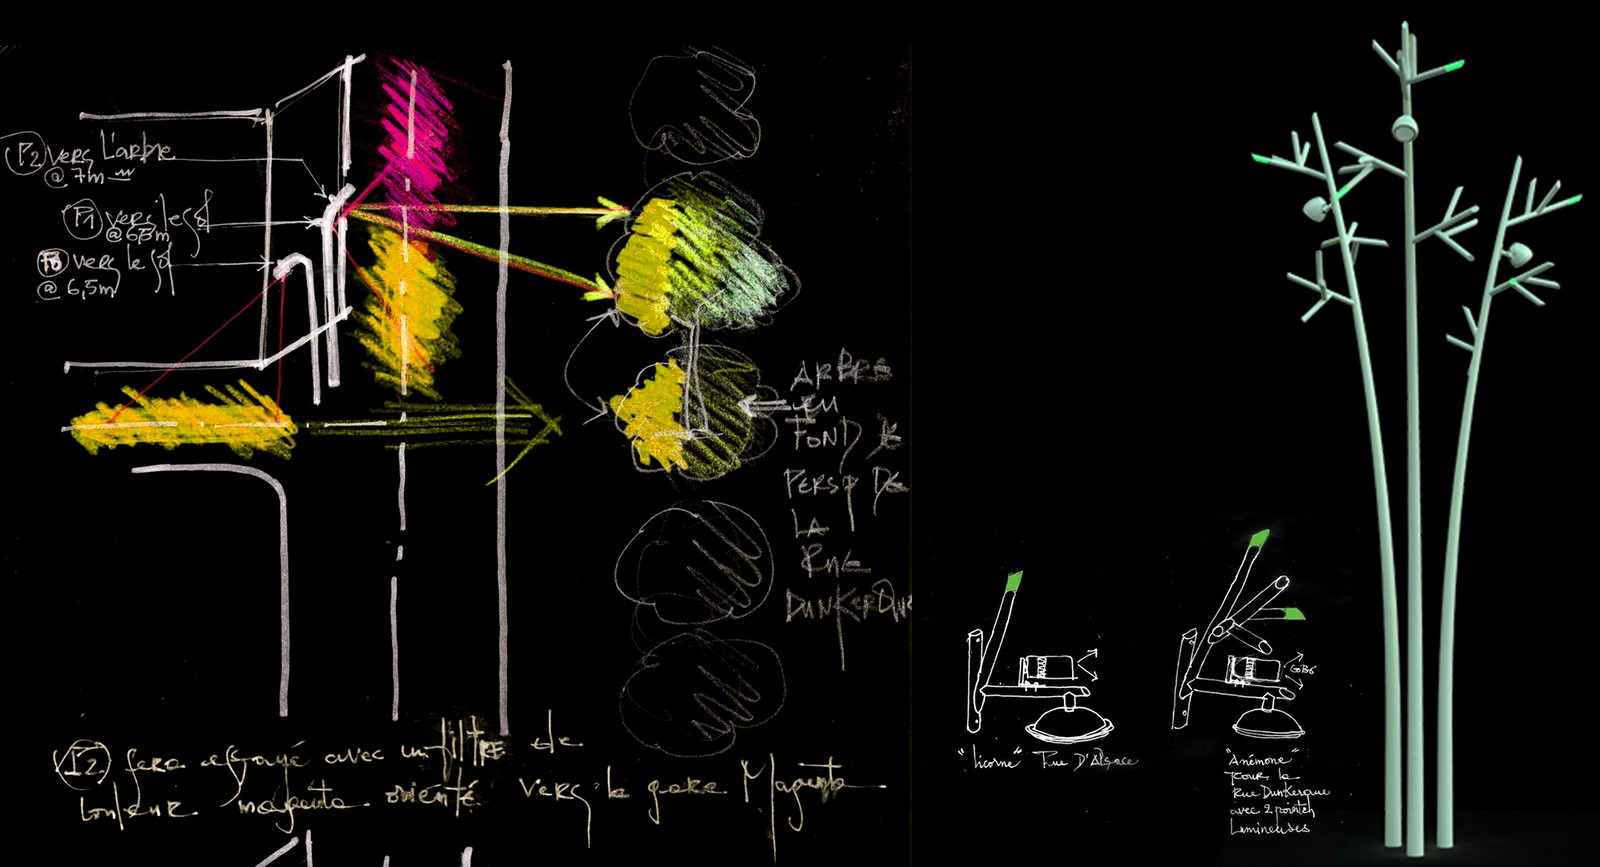 P2 vers L'arbre
@ 7m
P1 vers le
@ 6,5m
vers le
@ 6,5m
ARBRE
EN
FOND DE
PERSP DE
LA
RUE
DUNKERQUE
sera essayé avec un filtre de
couleur magenta orienté vers la gare Magenta
GOBO
"licorne" Rue D'Alsace
"Anémone"
pour la
Rue Dunkerque
avec 2 pointes
Lumineuses